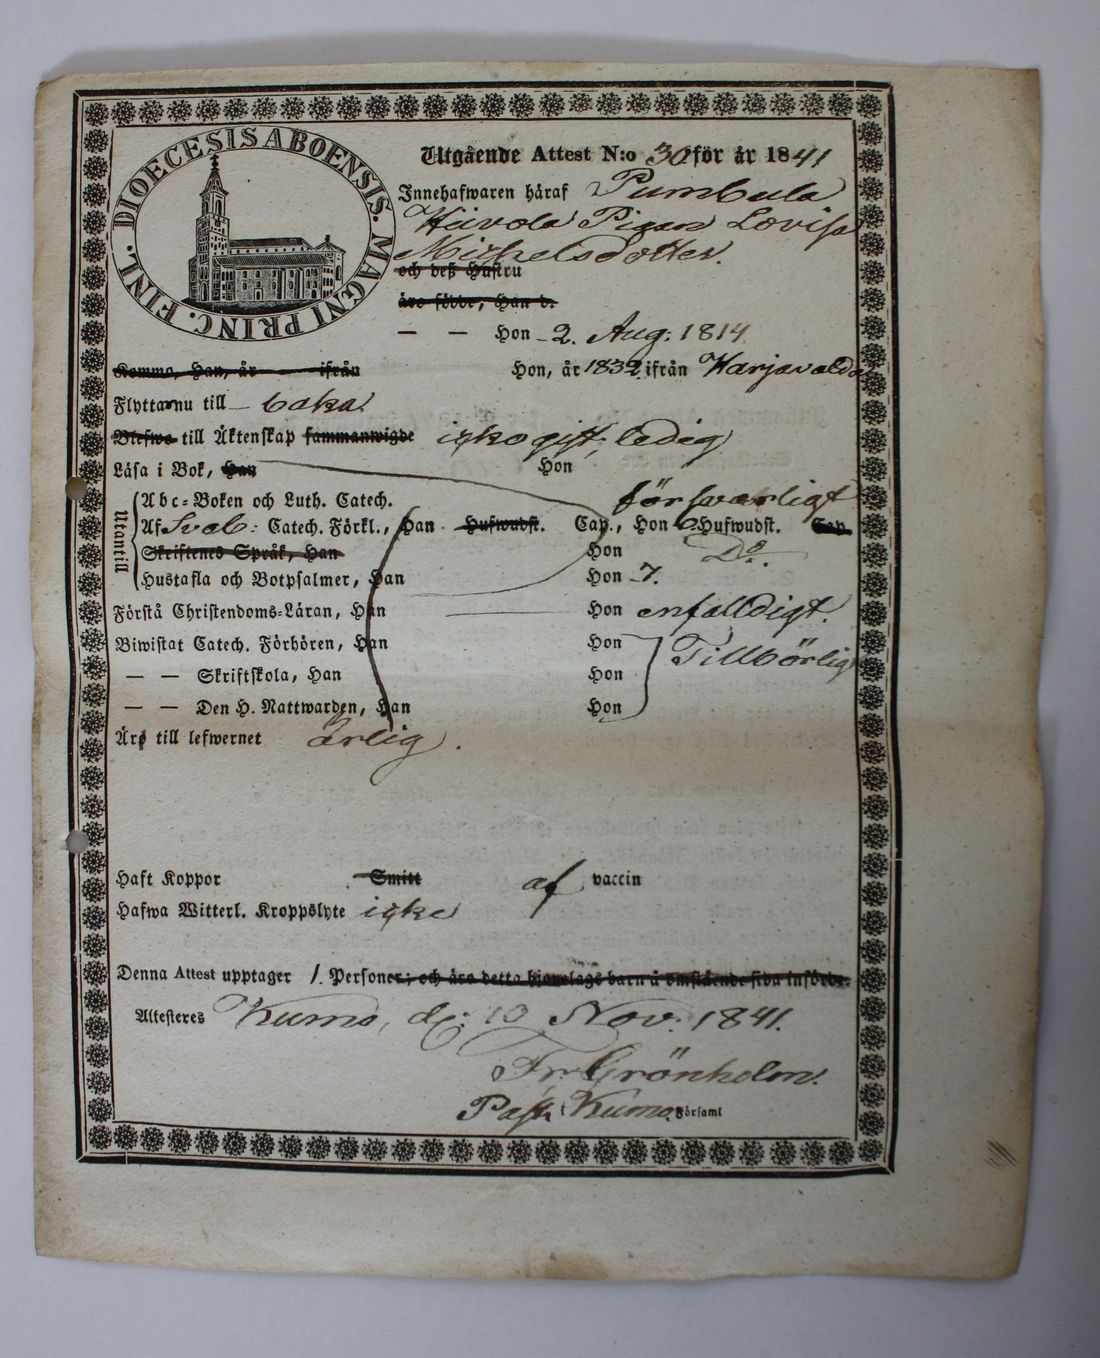 DIOECESIS ABOENSIS. MAGNI PRINC. FINL.
Utgående Attest N:o 30 för år 1841
Innehafwaren häraf Pumbula
Hiivola Pigan Lovisa
Michelsdotter.
och deß Hustru
äro födde, Han d.
— — Hon 2. Aug: 1814
Kommo, Han, år ifrån Hon, år 1832 ifrån Harjavalda
Flyttar nu till baka
Blefwo till Äktenskap sammanwigde icke gift, ledig
Läsa i Bok, Han Hon
Utantill
Abc-Boken och Luth. Catech. försvarligt
Af Sveb: Catech. Förkl., Han Hufwudst. Cap., Hon Hufwudst. Cap.
Skriftenes Språk, Han Hon Do.
Hustafla och Botpsalmer, Han Hon 7.
Förstå Christendoms-Läran, Han Hon enfalldigt.
Biwistat Catech. Förhören, Han Hon Tillbörligt
— — Skriftskola, Han Hon
— — Den H. Nattwarden, Han Hon
Är till lefwernet ärlig.
Haft Koppor Smitt af vaccin
Hafwa Witterl. Kroppslyte icke
Denna Attest upptager 1. Personer; och äro detta hjonelags barn å omstående sida införde.
Attesteres Kumo, d: 10 Nov: 1841.
Fr. Grönholm.
Past. i Kumo Församl